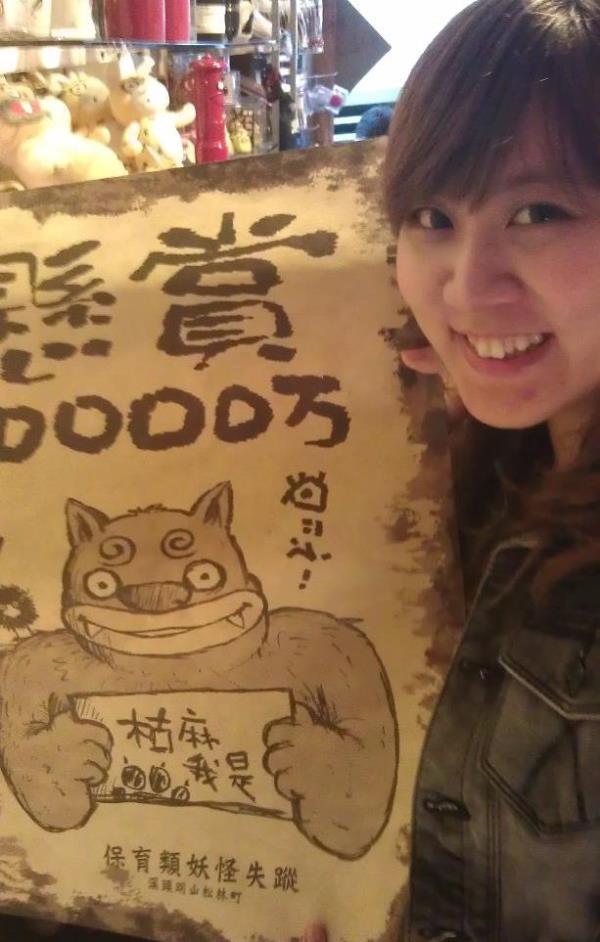 懸賞
0000万
枯麻
我是
保育類妖怪失蹤
溪頭明山松林町